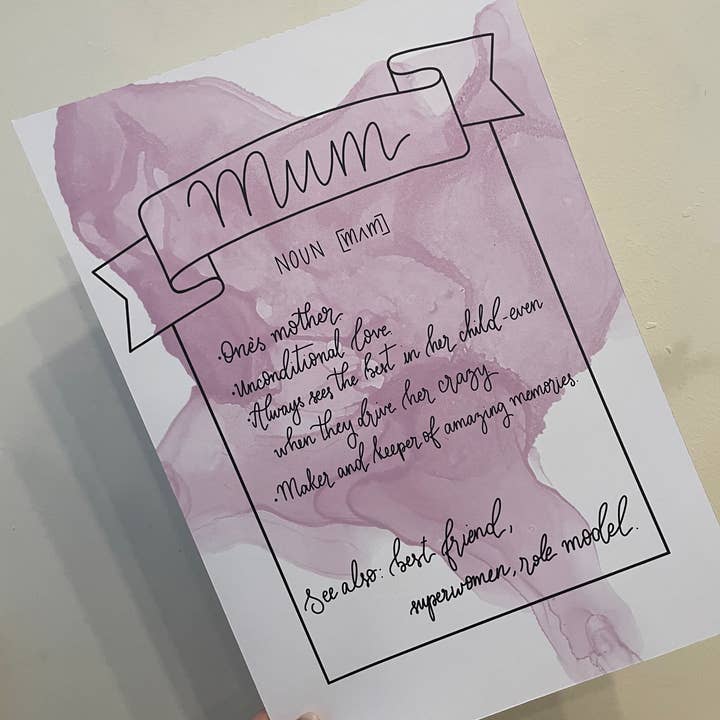 Mum
NOUN [mʌm]
·One's mother.
·Unconditional love
·Always sees the best in her child-even
when they drive her crazy
·Maker and keeper of amazing memories.
See also: best friend,
superwomen, role model.